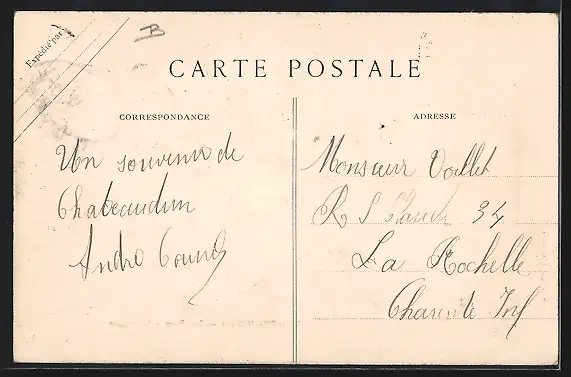 Expédié par
B
CARTE POSTALE
CORRESPONDANCE
Un souvenir de
Chateaudun
André
ADRESSE
Monsieur
R S Claude 34
La Rochelle
Charente Inf